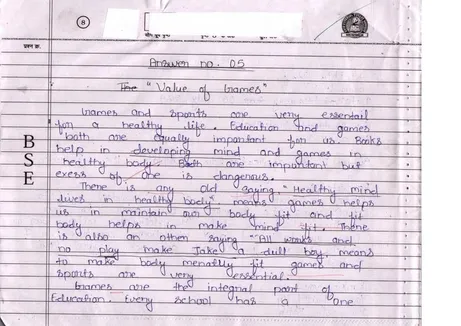 8
प्रश्न क्र.
Answer no. 05
"Value of Games"
Games and sports are very essentail
for a healthy life. Education and games
both are equally important for us. Books
help in developing mind and games in
healthy body. Both are important but
exess of one is dangerous.
There is any old saying "Healthy mind
lives in healthy body" means games helps
us in maintain our body fit and fit
body helps in make mind fit. There
is also an other saying "All works and
no play make Jake a dull boy, means
to make body menatlly fit games and
sports are very essential.
Games are the integral part of
Education. Every school has a one
B
S
E